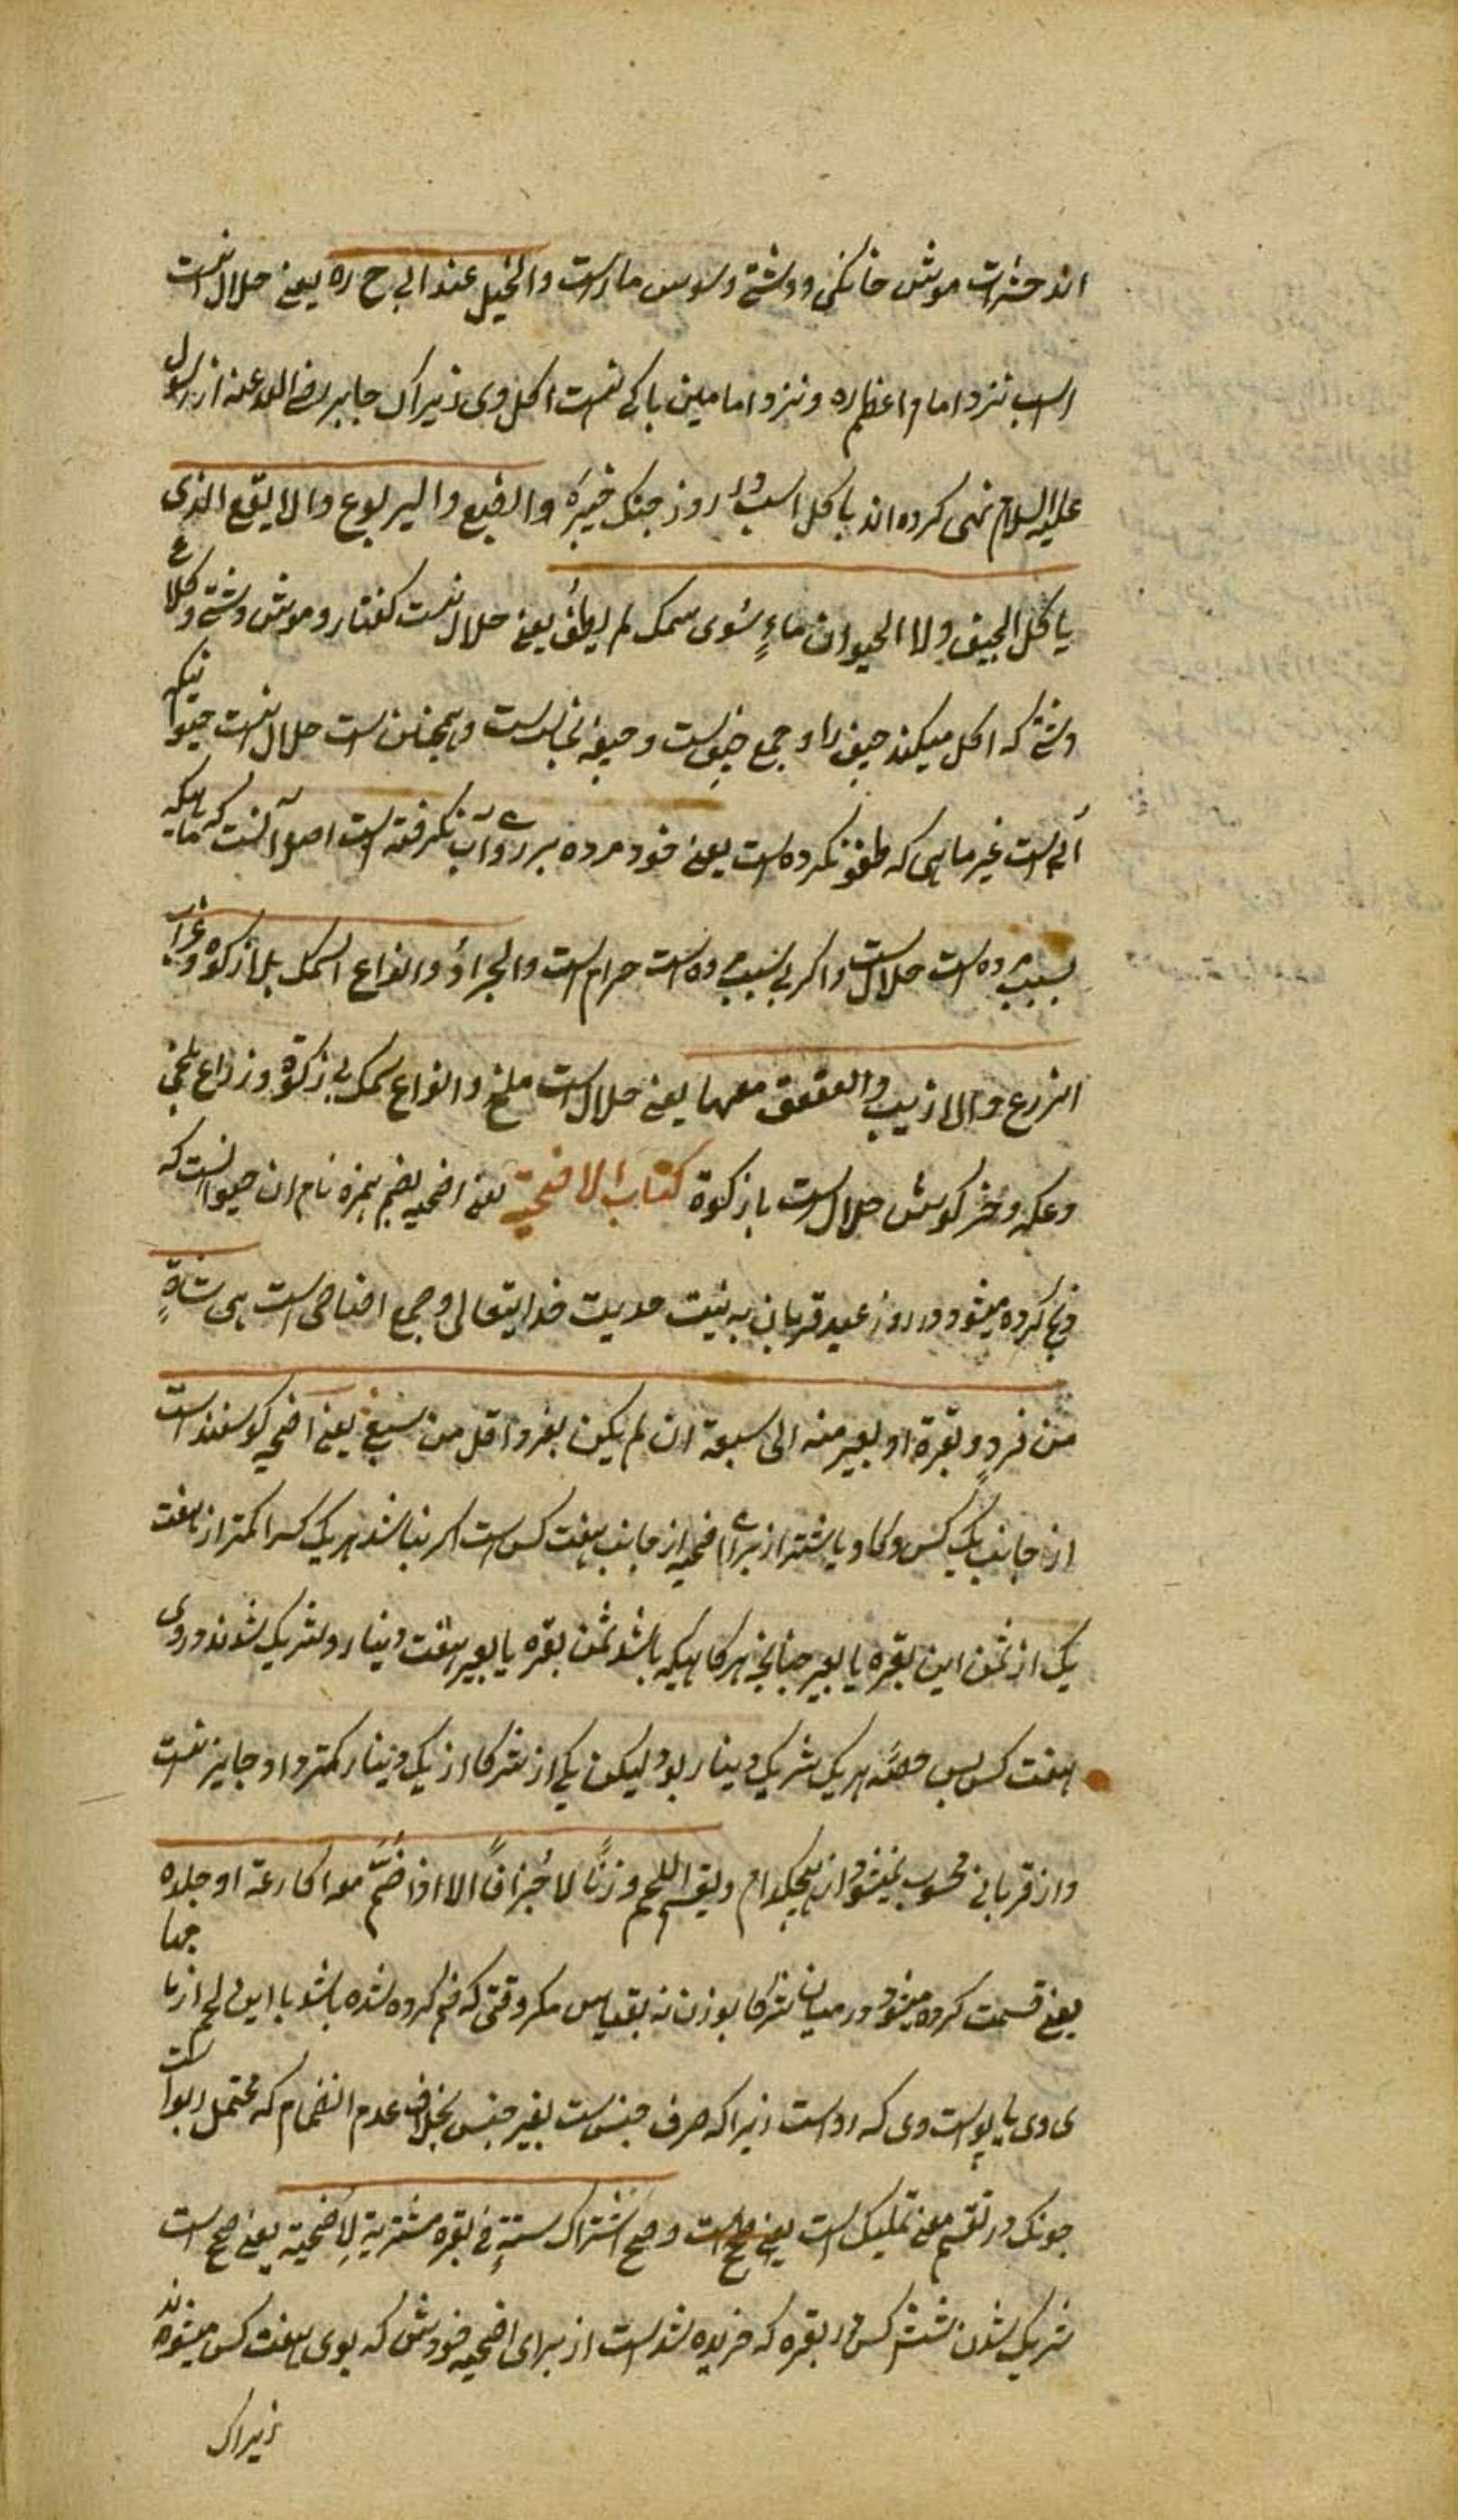 اند حشرات موش خانکی و دشتی و سوس مار است والخیل عند ابی ح ره یعنی حلال نیست
اسب نزد امام اعظم ره و نزد امامین باکی نیست اکل وی زیراک جابر رضی الله عنه از رسول
علیه السلام نهی کرده اند باکل اسب در روز جنک خیبره والضبع والیربوع والابقع الذی
یاکل الجیف ولا الحیوان ماءٍ سوی سمک لم یطف یعنی حلال نیست کفتار و موش دشتی و کلاغ
دشتی که اکل میکند جیف را و جمع جیف است و جیفه نجاست است و همچنین است حلال نیست حیوانیکه
آبی است غیر ماهی که طفو نکرده است یعنی خود مرده بر روی آب نکرفته است اصل آنست که ماهیکه
بسبب مرده است حلال است و اکر بی سبب مرده است حرام است والجراد وانواع السمک بلا زکوة وغراب
الزرع والارنب والعقعق معهما یعنی حلال است ملخ و انواع سمک بی زکوة و زراع یعنی
وعکه و خرکوش حلال است با زکوة کتاب الاضحیة یعنی اضحیه بضم همزه نام ان حیوانست که
ذبح کرده میشود در روز عید قربان به نیت هدیت خدایتعالی و جمع اضاحی است هی شاةٍ
من فردٍ و بقرة او بعیر منه الی سبعة ان لم یکن بفرد اقل من سبع یعنی اضحیه کوسفند است
از جانب یک کس و کاو یا شتر از برای اضحیه از جانب هفت کس است اکر نباشد هر یک کس را کمتر از هفت
یک از ثمن این بقره یا بعیر چنانچه هرکاهیکه باشد ثمن بقره یا بعیر هفت دینار و شریک شوند در وی
هفت کس پس حصّه هر یک شریک دینار بود لیکن یکی از شرکا از یک دینار کمتر داد جایز نیست
و از قربانی محسوب نمیشود از هیچکدام ویقسم اللحم وزنًا لا جُزافًا الا اذا ضُمَّ معه اکارعه او جلده
یعنی قسمت کرده میشود در میان شرکا بوزن نه بقیاس مکر وقتی که ضم کرده شده باشد با این لحم از پاچها
ی وی یا پوست وی که رواست زیرا که صرف جنس است بغیر جنس بخلاف عدم انضمام که محتمل ربوا است
چونک در تقسیم معنی تملیک است وصح اشتراک ستةٍ فی بقره مشتریة لاضحیة یعنی صح است
شریک شدن شش کس در بقره که خریده شد است از برای اضحیه خودش که بوی هفت کس میشوند
زیراک